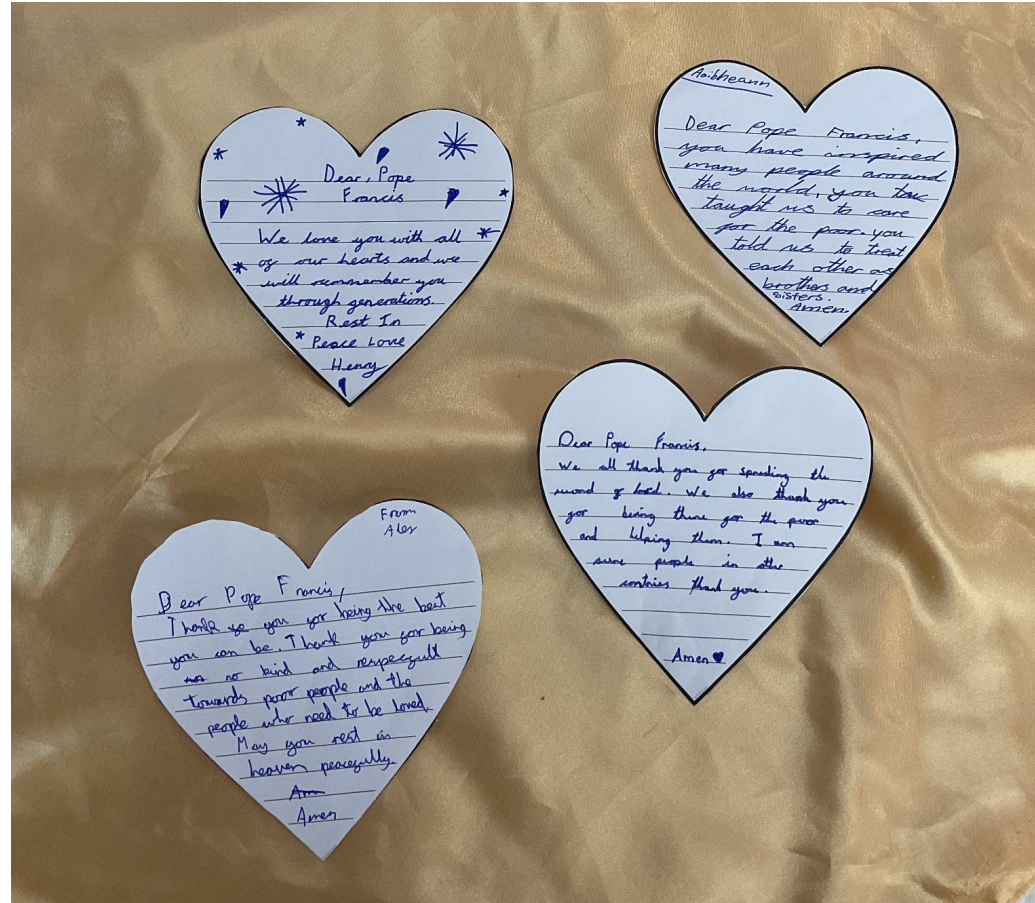 Dear, Pope
Francis
We love you with all
of our hearts and we
will remmember you
through generations.
Rest In
Peace Love
Henry
Aoibheann
Dear Pope Francis,
you have inspired
many people around
the world, you
taught us to care
for the poor. you
told us to treat
each other as
brothers and
sisters.
Amen
Dear Pope Francis,
We all thank you for spreding the
word of lord. We also thank you
for being there for the poor
and helping them. I am
sure people in othr
contries thank you.
Amen
From
Alex
Dear Pope Francis,
Thank you for being the best
you can be. Thank you for being
so kind and respecfull
towards poor people and the
people who need to be loved.
May you rest in
heaven peacefully.
Amen